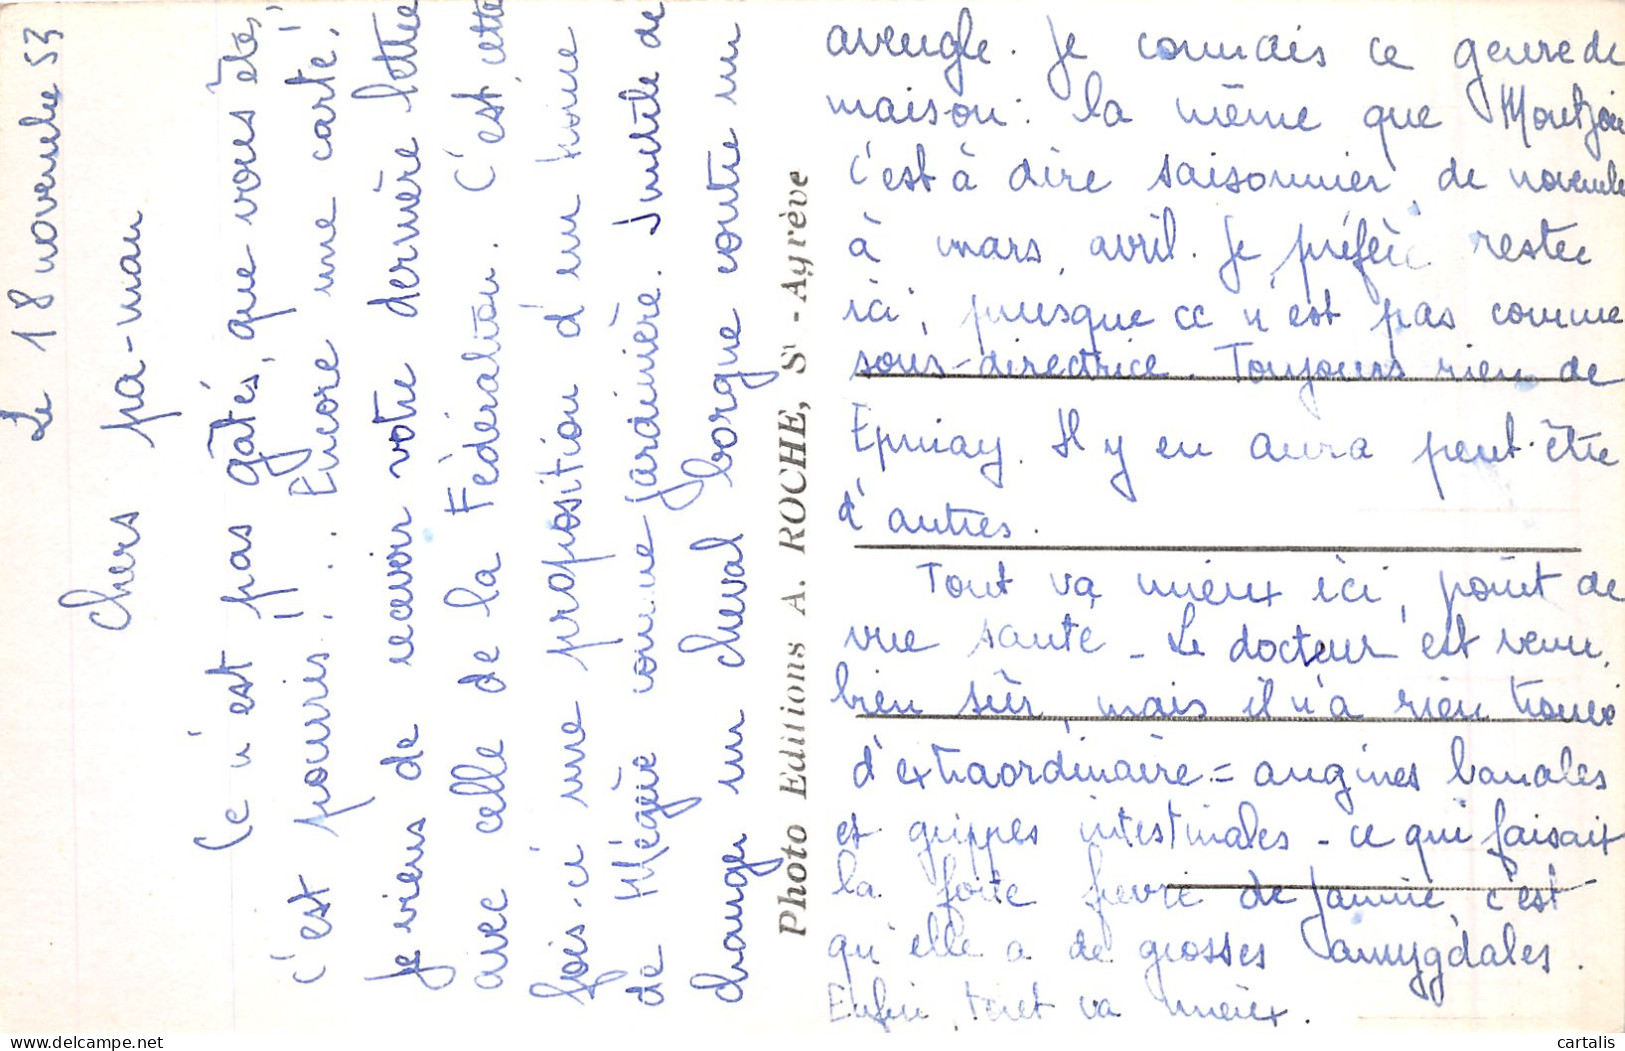 Le 18 novembre 53
Chers pa-man
Ce n'est pas gâtés, que vous êtes,
c'est "pourris"!... Encore une carte!
Je viens de recevoir votre dernière lettre
avec celle de la Fédération. C'est cette
fois-ci une proposition d'un home
de Mégève comme jardinière. Inutile de
changer un cheval borgne contre un
Photo Editions A. ROCHE, St-Agrève
aveugle. Je connais ce genre de
maison: la même que Montjoie
c'est à dire saisonnier, de novembre
à mars, avril. Je préfère rester
ici, puisque ce n'est pas comme
sous-directrice. Toujours rien de
Epinay. Il y en aura peut-être
d'autres.
Tout va mieux ici, point de
vue santé - Le docteur est venu,
bien sûr, mais il n'a rien trouvé
d'extraordinaire = angines banales
et grippes intestinales - ce qui faisait
la forte fièvre de Jannie, c'est
qu'elle a de grosses amygdales.
Enfin, tout va mieux.
cartalis